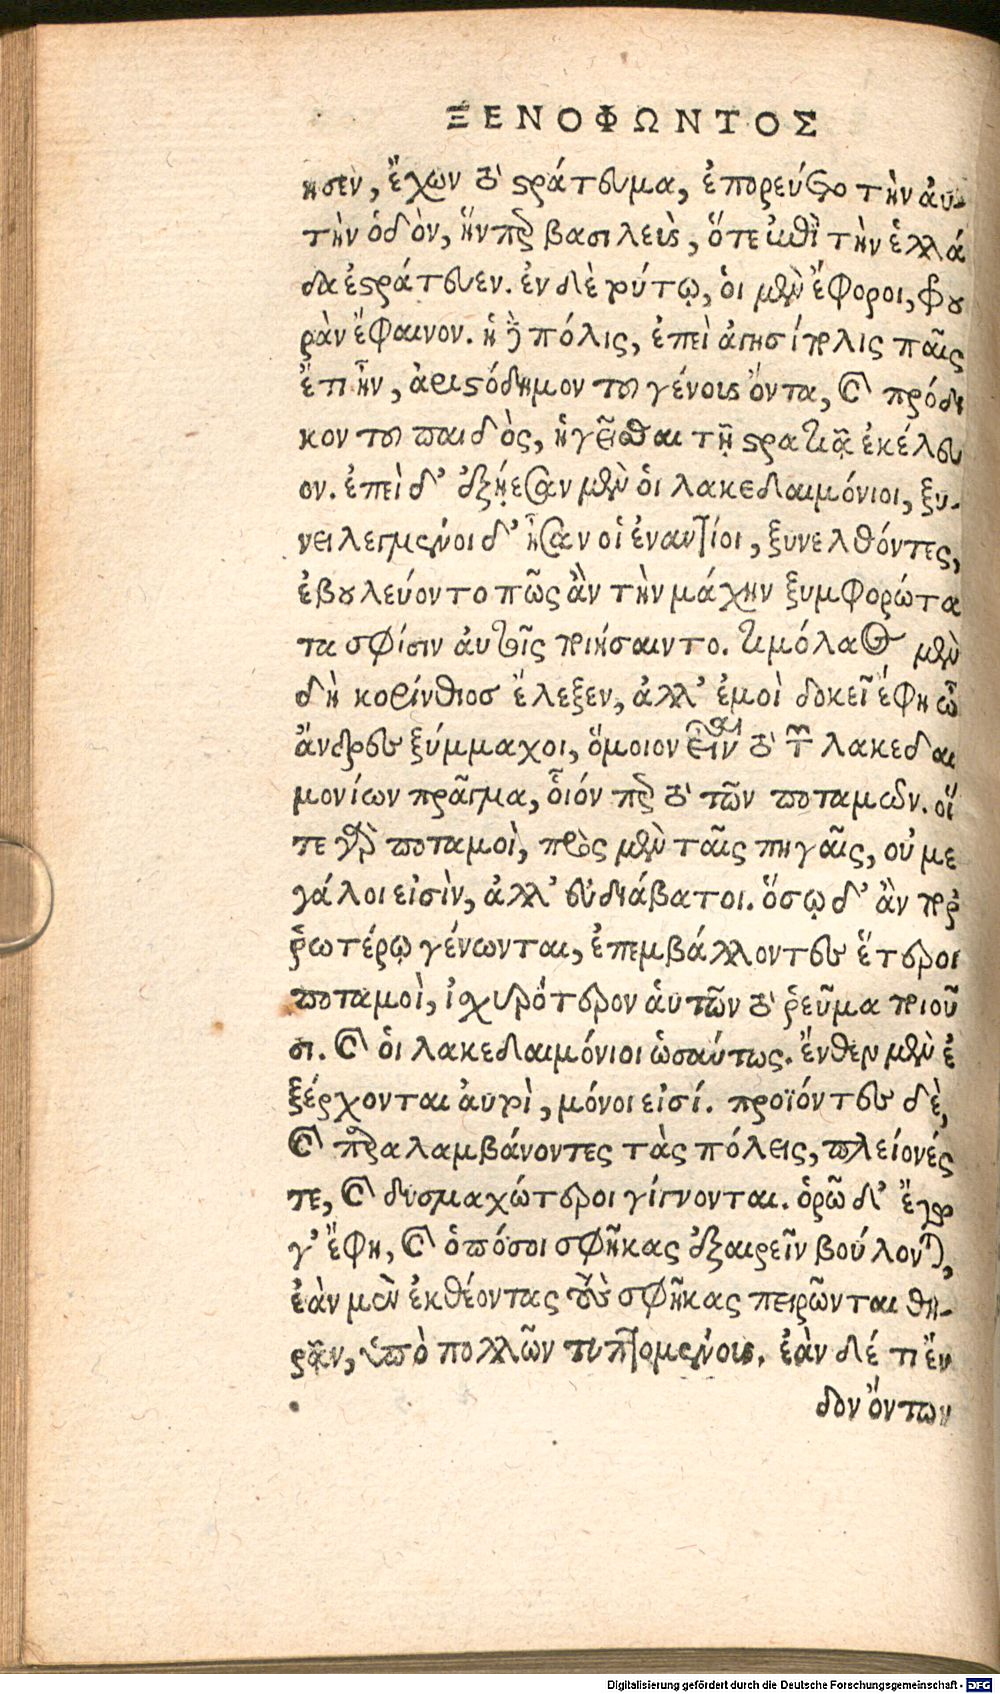 ΞΕΝΟΦΩΝΤΟΣ
ησεν, ἔχων τὸ στράτευμα, ἐπορεύετο τὴν ἀυ-
τὴν ὁδὸν, ἥνπερ βασιλεὺς, ὅτε ἐπὶ τὴν ἑλλά
δα ἐστράτευεν. ἐν δὲ τούτῳ, ὁι μὲν ἔφοροι, φρου
ρὰν ἔφαινον. ἡ δὲ πόλις, ἐπεὶ ἀγησίπολις παῖς
ἔτι ἦν, ἀριστόδημον τοῦ γένους ὄντα, καὶ πρόδι
κον τοῦ παιδὸς, ἡγεῖσθαι τῇ στρατιᾷ ἐκέλευ
ον. ἐπεὶ δ' ἐξῄεσαν μὲν ὁι λακεδαιμόνιοι, ξυ-
νειλεγμένοι δ' ἦσαν οἱ ἐναντίοι, ξυνελθόντες,
ἐβουλεύοντο πῶς ἂν τὴν μάχην ξυμφορώτα
τα σφίσιν ἀυτοῖς ποιήσαιντο. τιμόλαος μὲν
δὴ κορίνθιοσ ἔλεξεν, ἀλλ' ἐμοὶ δοκεῖ ἔφη ὦ
ἄνδρες ξύμμαχοι, ὅμοιον εἶναι τὸ τῶν λακεδαι
μονίων πρᾶγμα, οἷόν περ τὸ τῶν ποταμῶν. οἵ
τε γὰρ ποταμοὶ, πρὸς μὲν ταῖς πηγαῖς, οὐ με
γάλοι εἰσὶν, ἀλλ' εὐδιάβατοι. ὅσῳ δ' ἂν πορ
ῥωτέρῳ γένωνται, ἐπεμβάλλοντες ἕτεροι
ποταμοὶ, ἰχυρότερον ἀυτῶν τὸ ῥεῦμα ποιοῦ
σι. καὶ ὁι λακεδαιμόνιοι ὡσαύτως. ἔνθεν μὲν ἐ
ξέρχονται ἀυτοὶ, μόνοι εἰσί. προϊόντες δὲ,
καὶ παραλαμβάνοντες τὰς πόλεις, πλείονές
τε, καὶ δυσμαχώτεροι γίγνονται. ὁρῶ δ' ἔγω
γ' ἔφη, καὶ ὁπόσοι σφῆκας ἐξαιρεῖν βούλονται,
ἐὰν μὲν ἐκθέοντας τοὺς σφῆκας πειρῶνται θη-
ρᾷν, ὑπὸ πολλῶν τυπτομένους. ἐὰν δέ τι ἔν
δον ὄντων